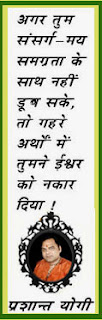 अगर तुम
संसर्ग-मय
समग्रता के
साथ नहीं
डूब सके,
तो गहरे
अर्थों में
तुमने ईश्वर
को नकार
दिया !
प्रशान्त योगी